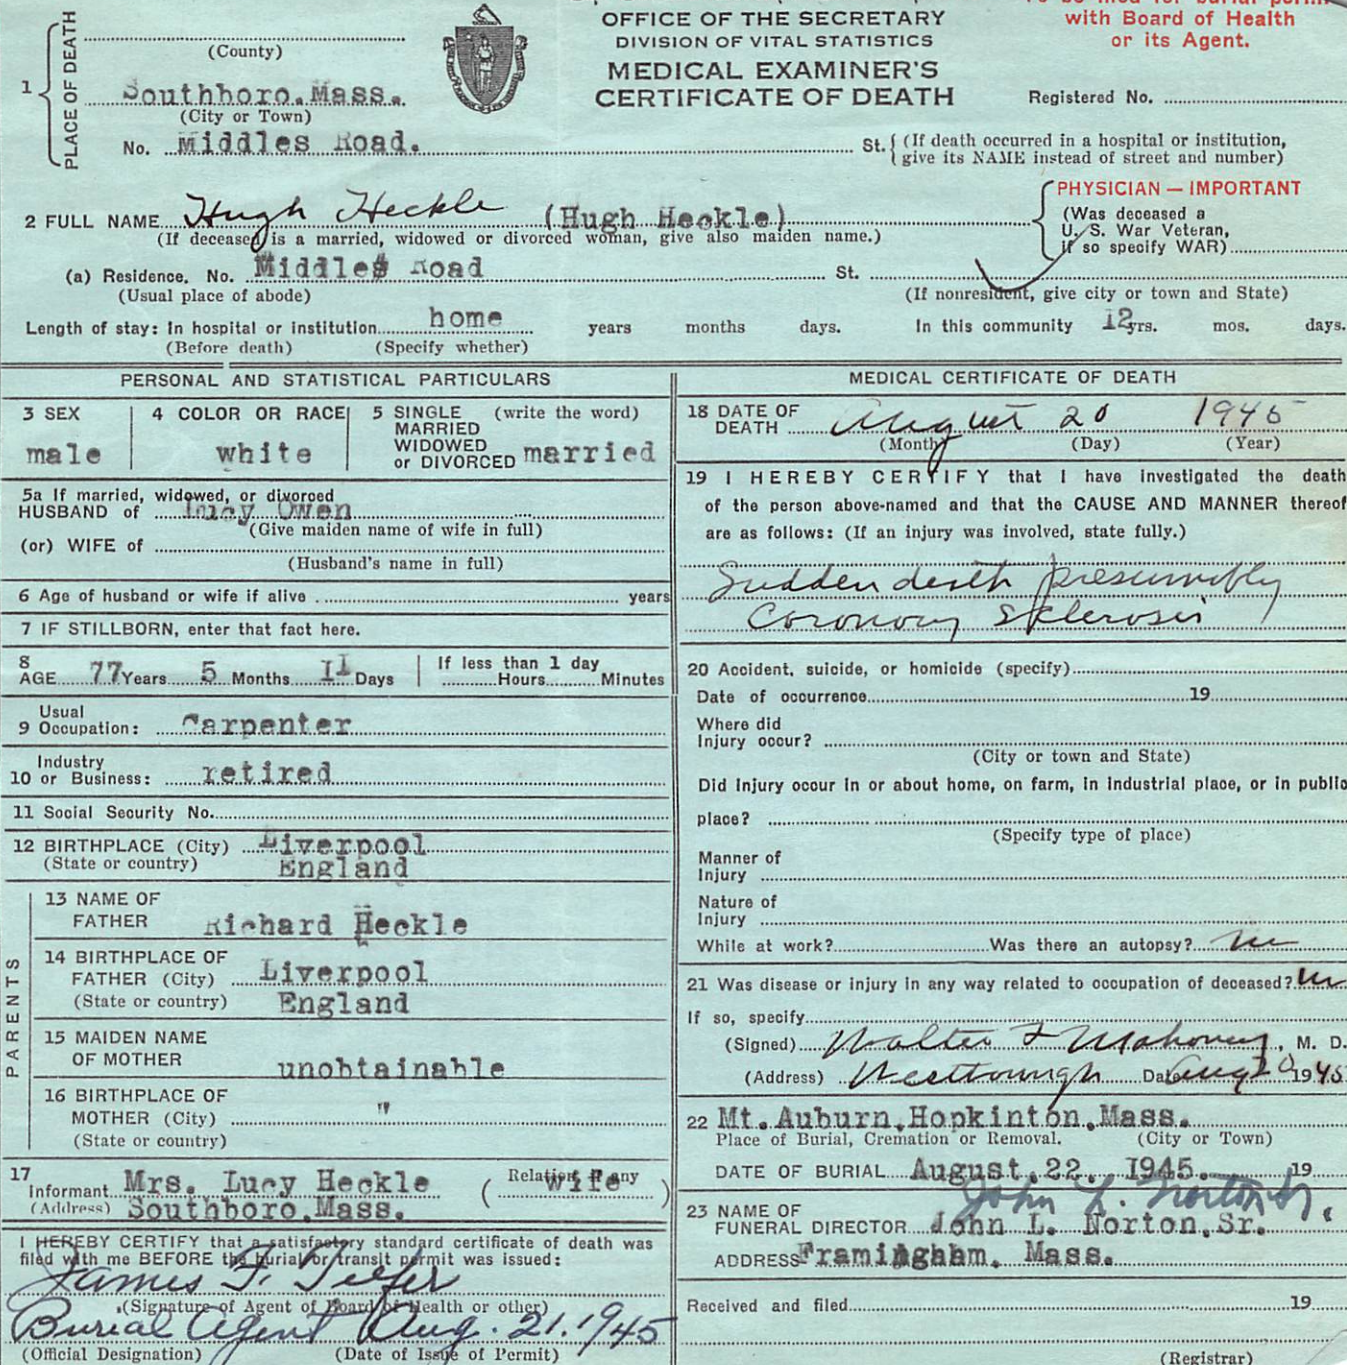 OFFICE OF THE SECRETARY
DIVISION OF VITAL STATISTICS
MEDICAL EXAMINER'S
CERTIFICATE OF DEATH
with Board of Health
or its Agent.
Registered No.
1 PLACE OF DEATH
(County)
Southboro.Mass.
(City or Town)
No. Middles Road. St. { (If death occurred in a hospital or institution, give its NAME instead of street and number)
2 FULL NAME Hugh Heckle (Hugh Heckle)
(If deceased is a married, widowed or divorced woman, give also maiden name.)
PHYSICIAN — IMPORTANT
(Was deceased a
U. S. War Veteran,
if so specify WAR)
(a) Residence. No. Middles Road St.
(Usual place of abode) (If nonresident, give city or town and State)
Length of stay: In hospital or institution home years months days. In this community 12 yrs. mos. days.
(Before death) (Specify whether)
PERSONAL AND STATISTICAL PARTICULARS
3 SEX
male
4 COLOR OR RACE
white
5 SINGLE (write the word)
MARRIED
WIDOWED
or DIVORCED married
5a If married, widowed, or divorced
HUSBAND of Lucy Owen
(Give maiden name of wife in full)
(or) WIFE of
(Husband's name in full)
6 Age of husband or wife if alive years
7 IF STILLBORN, enter that fact here.
8 AGE 77 Years 5 Months 11 Days
If less than 1 day
Hours Minutes
9 Usual Occupation: Carpenter
10 Industry or Business: retired
11 Social Security No.
12 BIRTHPLACE (City) Liverpool
(State or country) England
PARENTS
13 NAME OF
FATHER Richard Heckle
14 BIRTHPLACE OF
FATHER (City) Liverpool
(State or country) England
15 MAIDEN NAME
OF MOTHER unobtainable
16 BIRTHPLACE OF
MOTHER (City) "
(State or country)
17 Informant Mrs. Lucy Heckle (Relation, if any wife)
(Address) Southboro.Mass.
I HEREBY CERTIFY that a satisfactory standard certificate of death was
filed with me BEFORE the burial or transit permit was issued:
James F. Telfer
(Signature of Agent of Board of Health or other)
Burial Agent Aug. 21. 1945
(Official Designation) (Date of Issue of Permit)
MEDICAL CERTIFICATE OF DEATH
18 DATE OF
DEATH August 20 1945
(Month) (Day) (Year)
19 I HEREBY CERTIFY that I have investigated the death
of the person above-named and that the CAUSE AND MANNER thereof
are as follows: (If an injury was involved, state fully.)
Sudden death presumably
Coronary Sklerosis
20 Accident, suicide, or homicide (specify)
Date of occurrence 19
Where did
Injury occur?
(City or town and State)
Did Injury occur in or about home, on farm, in Industrial place, or in public
place?
(Specify type of place)
Manner of
Injury
Nature of
Injury
While at work? Was there an autopsy? no
21 Was disease or injury in any way related to occupation of deceased? no
If so, specify
(Signed) Walter F Mahoney, M. D.
(Address) Westborough Date Aug 20 1945
22 Mt. Auburn.Hopkinton.Mass.
Place of Burial, Cremation or Removal. (City or Town)
DATE OF BURIAL August.22. 1945. 19
John L. Norton Sr.
23 NAME OF
FUNERAL DIRECTOR John L. Norton.Sr.
ADDRESS Framingham. Mass.
Received and filed 19
(Registrar)